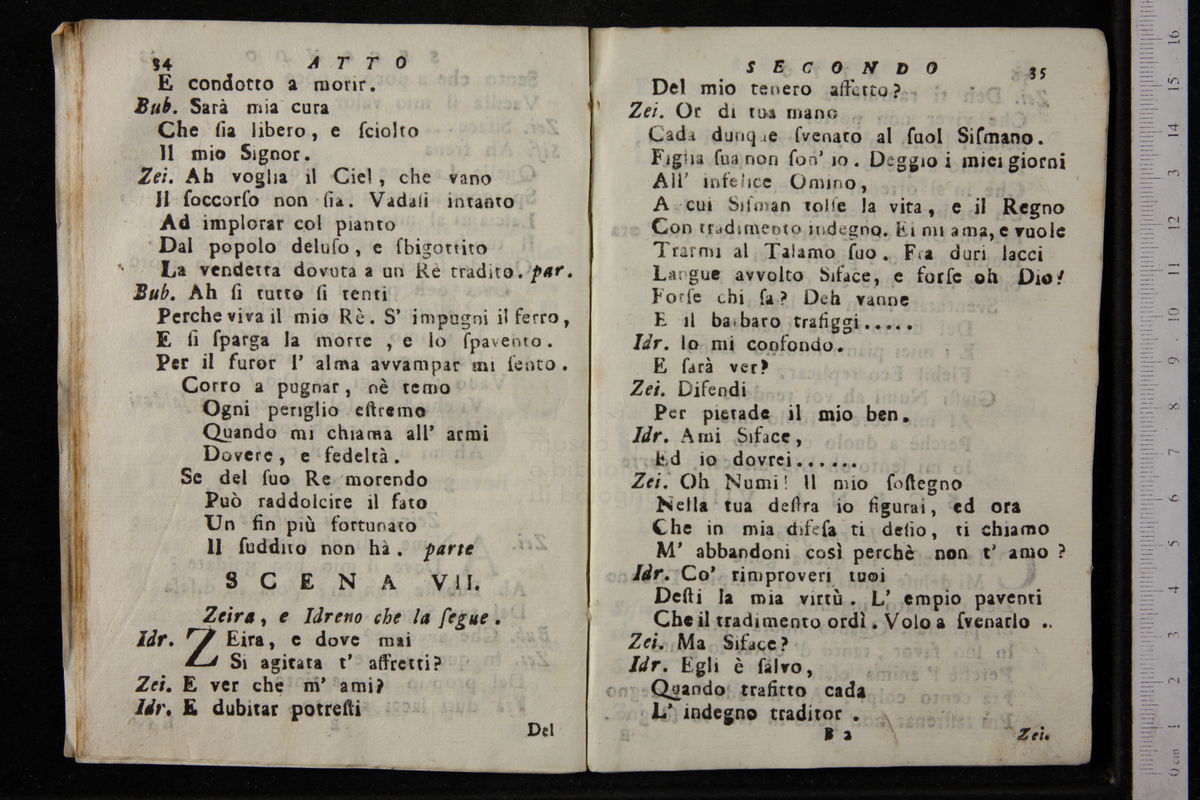 34 ATTO
E condotto a morir.
Bub. Sarà mia cura
Che ſia libero, e ſciolto
Il mio Signor.
Zei. Ah voglia il Ciel, che vano
Il ſoccorſo non ſia. Vadaſi intanto
Ad implorar col pianto
Dal popolo deluſo, e sbigottito
La vendetta dovuta a un Rè tradito. par.
Bub. Ah ſi tutto ſi tenti
Perche viva il mio Rè. S' impugni il ferro,
E ſi ſparga la morte, e lo ſpavento.
Per il furor l' alma avvampar mi ſento.
Corro a pugnar, nè temo
Ogni periglio eſtremo
Quando mi chiama all' armi
Dovere, e fedeltà.
Se del ſuo Re morendo
Può raddolcire il fato
Un fin più fortunato
Il ſuddito non hà. parte
SCENA VII.
Zeira, e Idreno che la ſegue.
Idr. ZEira, e dove mai
Si agitata t' affretti?
Zei. E ver che m' ami?
Idr. E dubitar potreſti
Del
SECONDO 35
Del mio tenero affetto?
Zei. Or di tua mano
Cada dunque ſvenato al ſuol Siſmano.
Figlia ſua non ſon' io. Deggio i miei giorni
All' infelice Omino,
A cui Siſman tolſe la vita, e il Regno
Con tradimento indegno. Ei mi ama, e vuole
Trarmi al Talamo ſuo. Fra duri lacci
Langue avvolto Siface, e forſe oh Dio!
Forſe chi ſa? Deh vanne
E il barbaro trafiggi.....
Idr. Io mi confondo.
E ſarà ver?
Zei. Difendi
Per pietade il mio ben.
Idr. Ami Siface,
Ed io dovrei......
Zei. Oh Numi! Il mio ſoſtegno
Nella tua deſtra io figurai, ed ora
Che in mia difeſa ti deſio, ti chiamo
M' abbandoni così perchè non t' amo?
Idr. Co' rimproveri tuoi
Deſti la mia virtù. L' empio paventi
Che il tradimento ordì. Volo a ſvenarlo ..
Zei. Ma Siface?
Idr. Egli è ſalvo,
Quando trafitto cada
L' indegno traditor.
B 2 Zei.